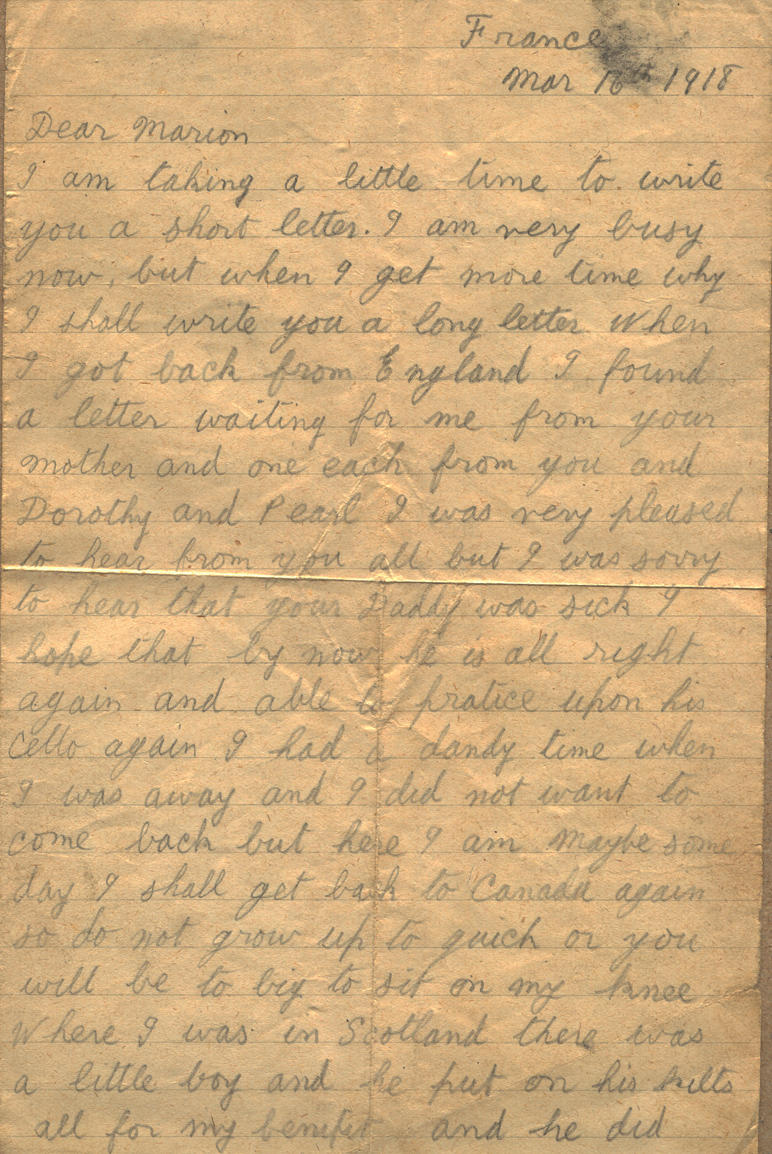 France
Mar 16th 1918
Dear Marion
I am taking a little time to write
you a short letter. I am very busy
now, but when I get more time why
I shall write you a long letter When
I got back from England I found
a letter waiting for me from your
mother and one each from you and
Dorothy and Pearl I was very pleased
to hear from you all but I was sorry
to hear that your Daddy was sick I
hope that by now he is all right
again and able to pratice upon his
Cello again I had a dandy time when
I was away and I did not want to
come back but here I am Maybe some
day I shall get back to Canada again
so do not grow up to quick or you
will be to big to sit on my knee
Where I was in Scotland there was
a little boy and he put on his kilts
all for my benifit and he did